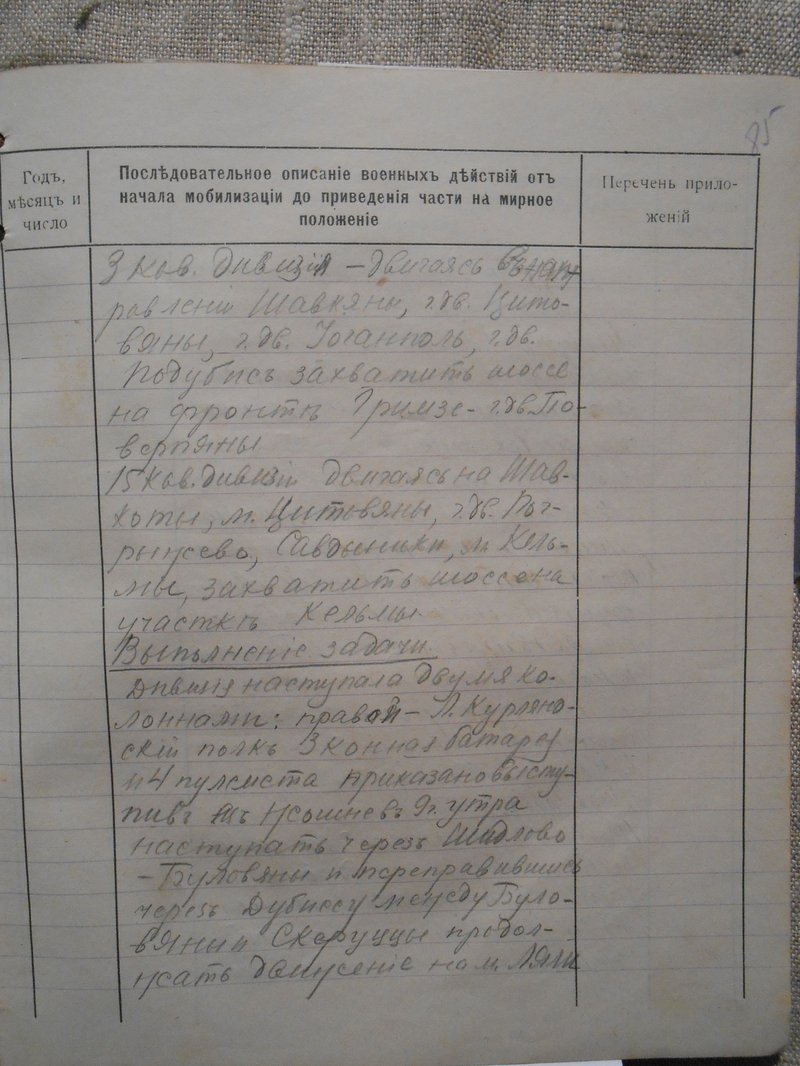 85
Годъ, мѣсяцъ и число
Послѣдовательное описаніе военныхъ дѣйствій отъ
начала мобилизаціи до приведенія части на мирное
положеніе
Перечень прило-
женій
3 кав. дивизія – двигаясь въ нап
равленіи Шавкяны, г. дв. Цито-
вяны, г. дв. Іоганполь, г. дв.
Подубись захватить шоссе
на фронтѣ Гримзе - г. дв. По-
верпяны
15 кав. дивизіи двигаясь на Шав-
коты, м. Цитовяны, г. дв.
Савдыники, м. Кель-
мы, захватить шоссе на
участкѣ Кельмы
Выполненіе задачи.
Дивизія наступала двумя ко-
лоннами: правой – Л. Курлянд-
скій полкъ 3 конная батарея
и 4 пулемета приказано высту-
пивъ 9 ч. утра
наступать черезъ Шидлово
– Буловяны и переправившись
черезъ Дубиссу между Було-
вяны и Скеруццы продол-
жать движеніе на м.